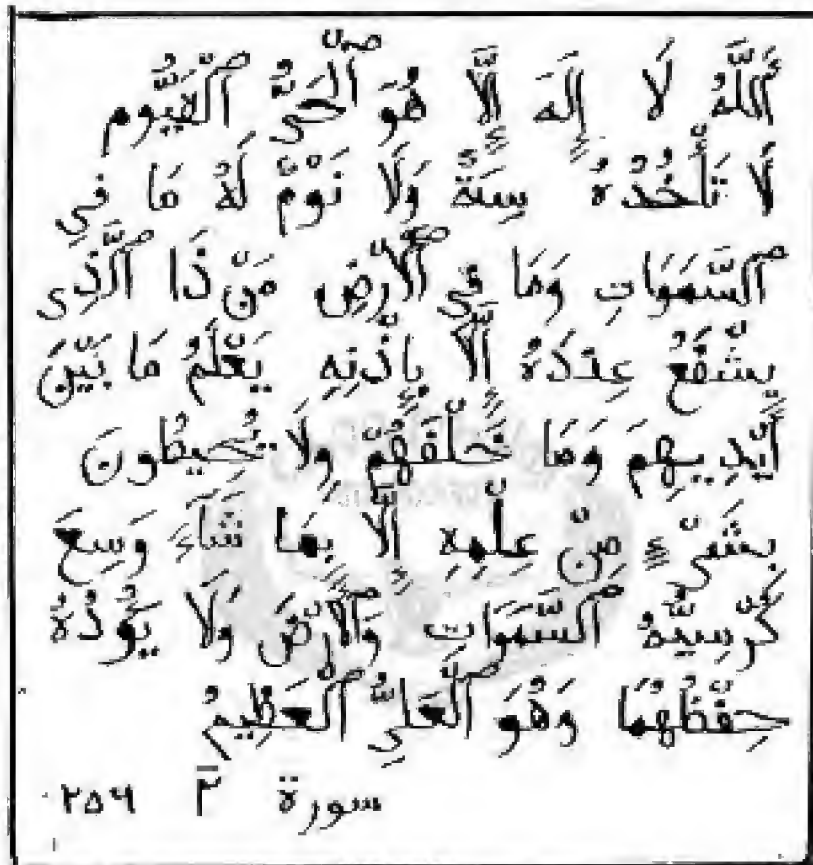 أَللَّهُ لَا إِلَهَ إِلَّا هُوَ ٱلْحَيُّ ٱلْقَيُّوم
لَا تَأْخُذُهُ سِنَةٌ وَلَا نَوْمٌ لَهُ مَا فِي
ٱلسَّمَوَاتِ وَمَا فِي ٱلْأَرْضِ مَنْ ذَا ٱلَّذِى
يَشْفَعُ عِنْدَهُ إِلَّا بِإِذْنِهِ يَعْلَمُ مَا بَيْنَ
أَيْدِيهِمَ وَمَا خَلْفَهُمْ وِلَا يُحِيطُونَ
بِشَىْءٍ مِنْ عِلْمِهِ إِلَّا بِمَا شَآءَ وَسِعَ
كُرْسِيُّهُ ٱلسَّمَوَاتِ وَٱلْأَرْضَ وَلَا يَؤُدُهُ
حِفْظُهُمَا وَهُوَ ٱلْعَلِيُّ ٱلْعَظِيمُ
سورة ٢ ٢٥٦